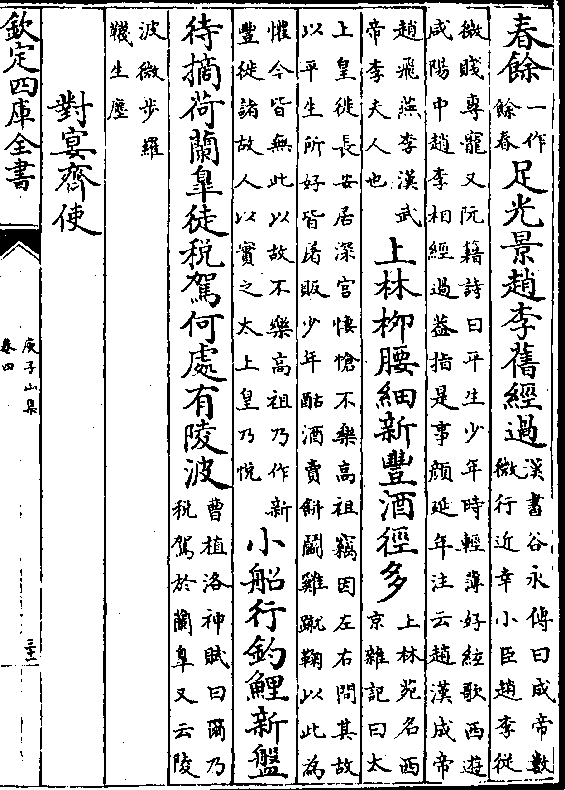 春餘一作餘春足光景趙李舊經過漢書谷永傳曰成帝數微行近幸小臣趙李從
微賤專寵又阮籍詩曰平生少年時輕薄好絃歌西遊咸陽中趙李相經過葢指是事顔延年注云趙漢成帝
趙飛燕李漢武帝李夫人也上林柳腰細新豐酒徑多上林苑名西京雜記曰太
上皇徙長安居深宫悽愴不樂高祖竊因左右問其故以平生所好皆屠販少年酤酒賣餅鬬雞蹴鞠以此爲
懽今皆無此以故不樂高祖乃作新豐徙諸故人以實之太上皇乃悦小船行釣鯉新盤
待摘荷蘭臯徒税駕何處有陵波曹植洛神賦曰爾乃税駕於蘭臯又云陵
波微步羅韈生塵
對宴齊使
欽定四庫全書
庾子山集
卷四